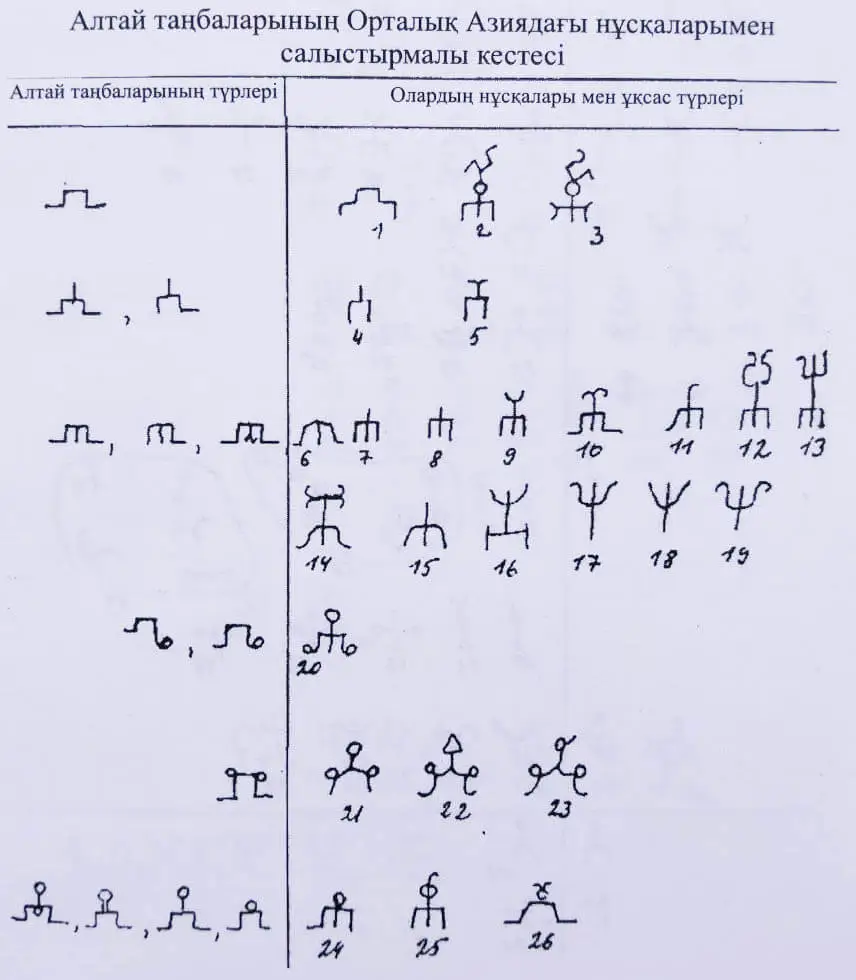 Алтай таңбаларының Орталық Азиядағы нұсқаларымен
салыстырмалы кестесі
Алтай таңбаларының түрлері
Олардың нұсқалары мен ұқсас түрлері
1 2 3
, 4 5
, , 6 7 8 9 10 11 12 13
14 15 16 17 18 19
, 20
21 22 23
, , , 24 25 26